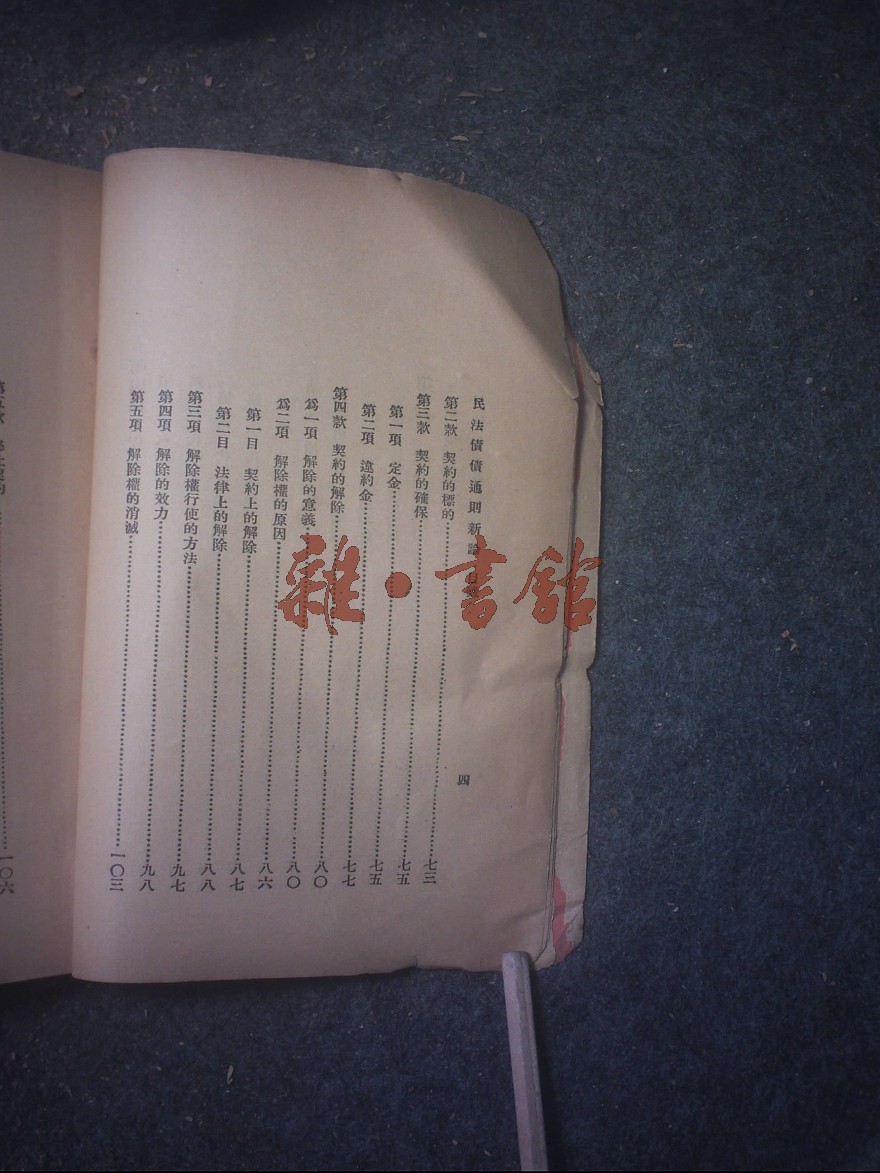 民法債債通則新論
四
第二款 契約的標的……七三
第三款 契約的確保……七五
第一項 定金……七五
第二項 違約金……七七
第四款 契約的解除……八〇
爲一項 解除的意義……八〇
爲二項 解除權的原因……八六
第一目 契約上的解除……八七
第二目 法律上的解除……八八
第三項 解除權行使的方法……九七
第四項 解除的效力……九八
第五項 解除權的消滅……一〇三
一〇六
雜·書館